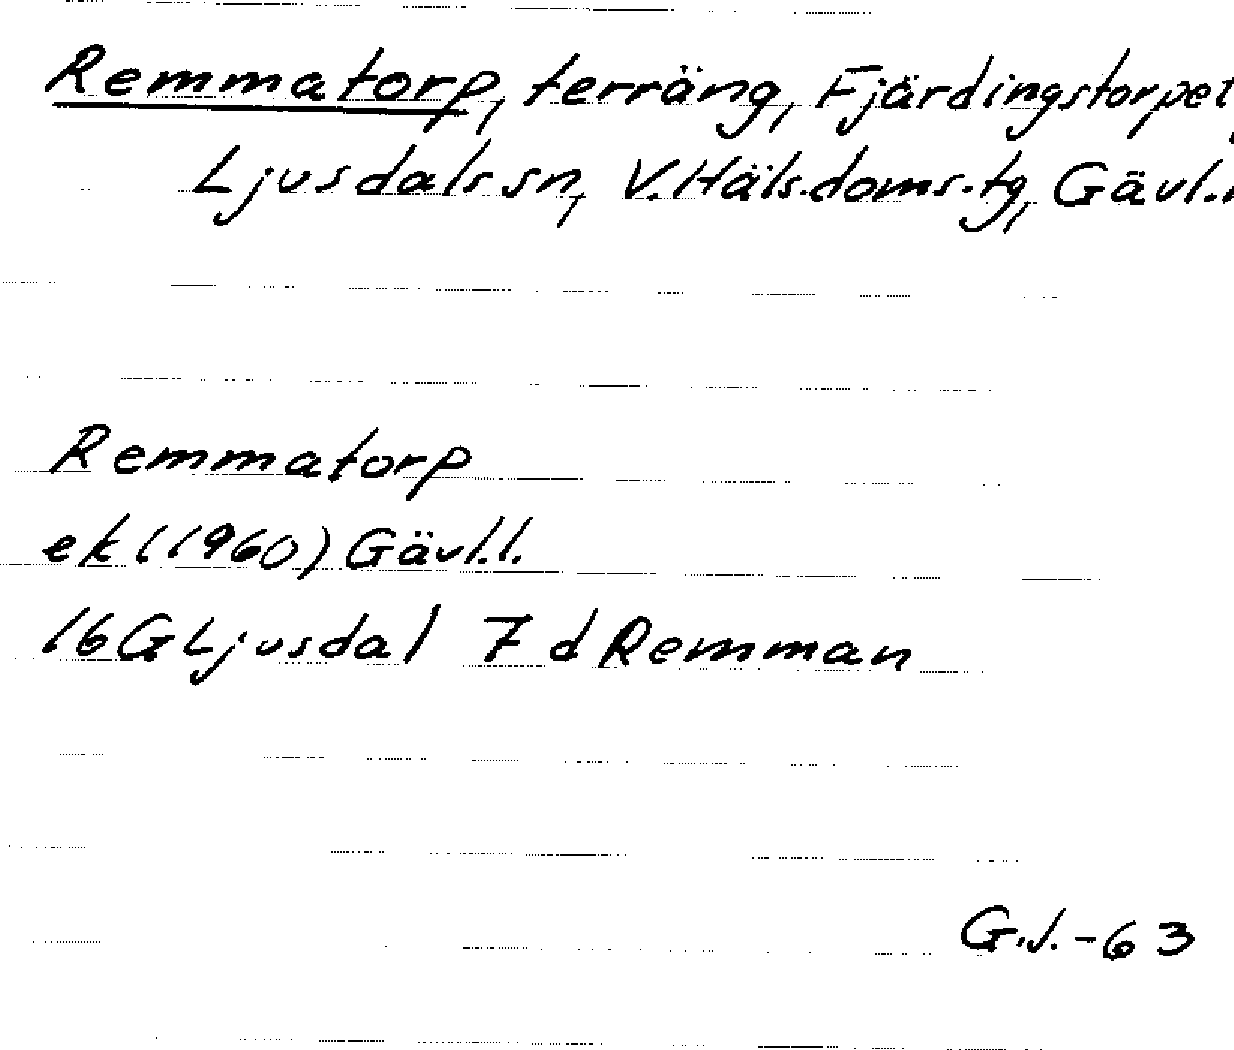 Remmatorp, terräng, Fjärdingstorpet,
Ljusdals sn, V. Häls. doms. tg, Gävl.
Remmatorp
ek (1960) Gävl.l.
16G Ljusdal 7 d Remman
G.J. -63